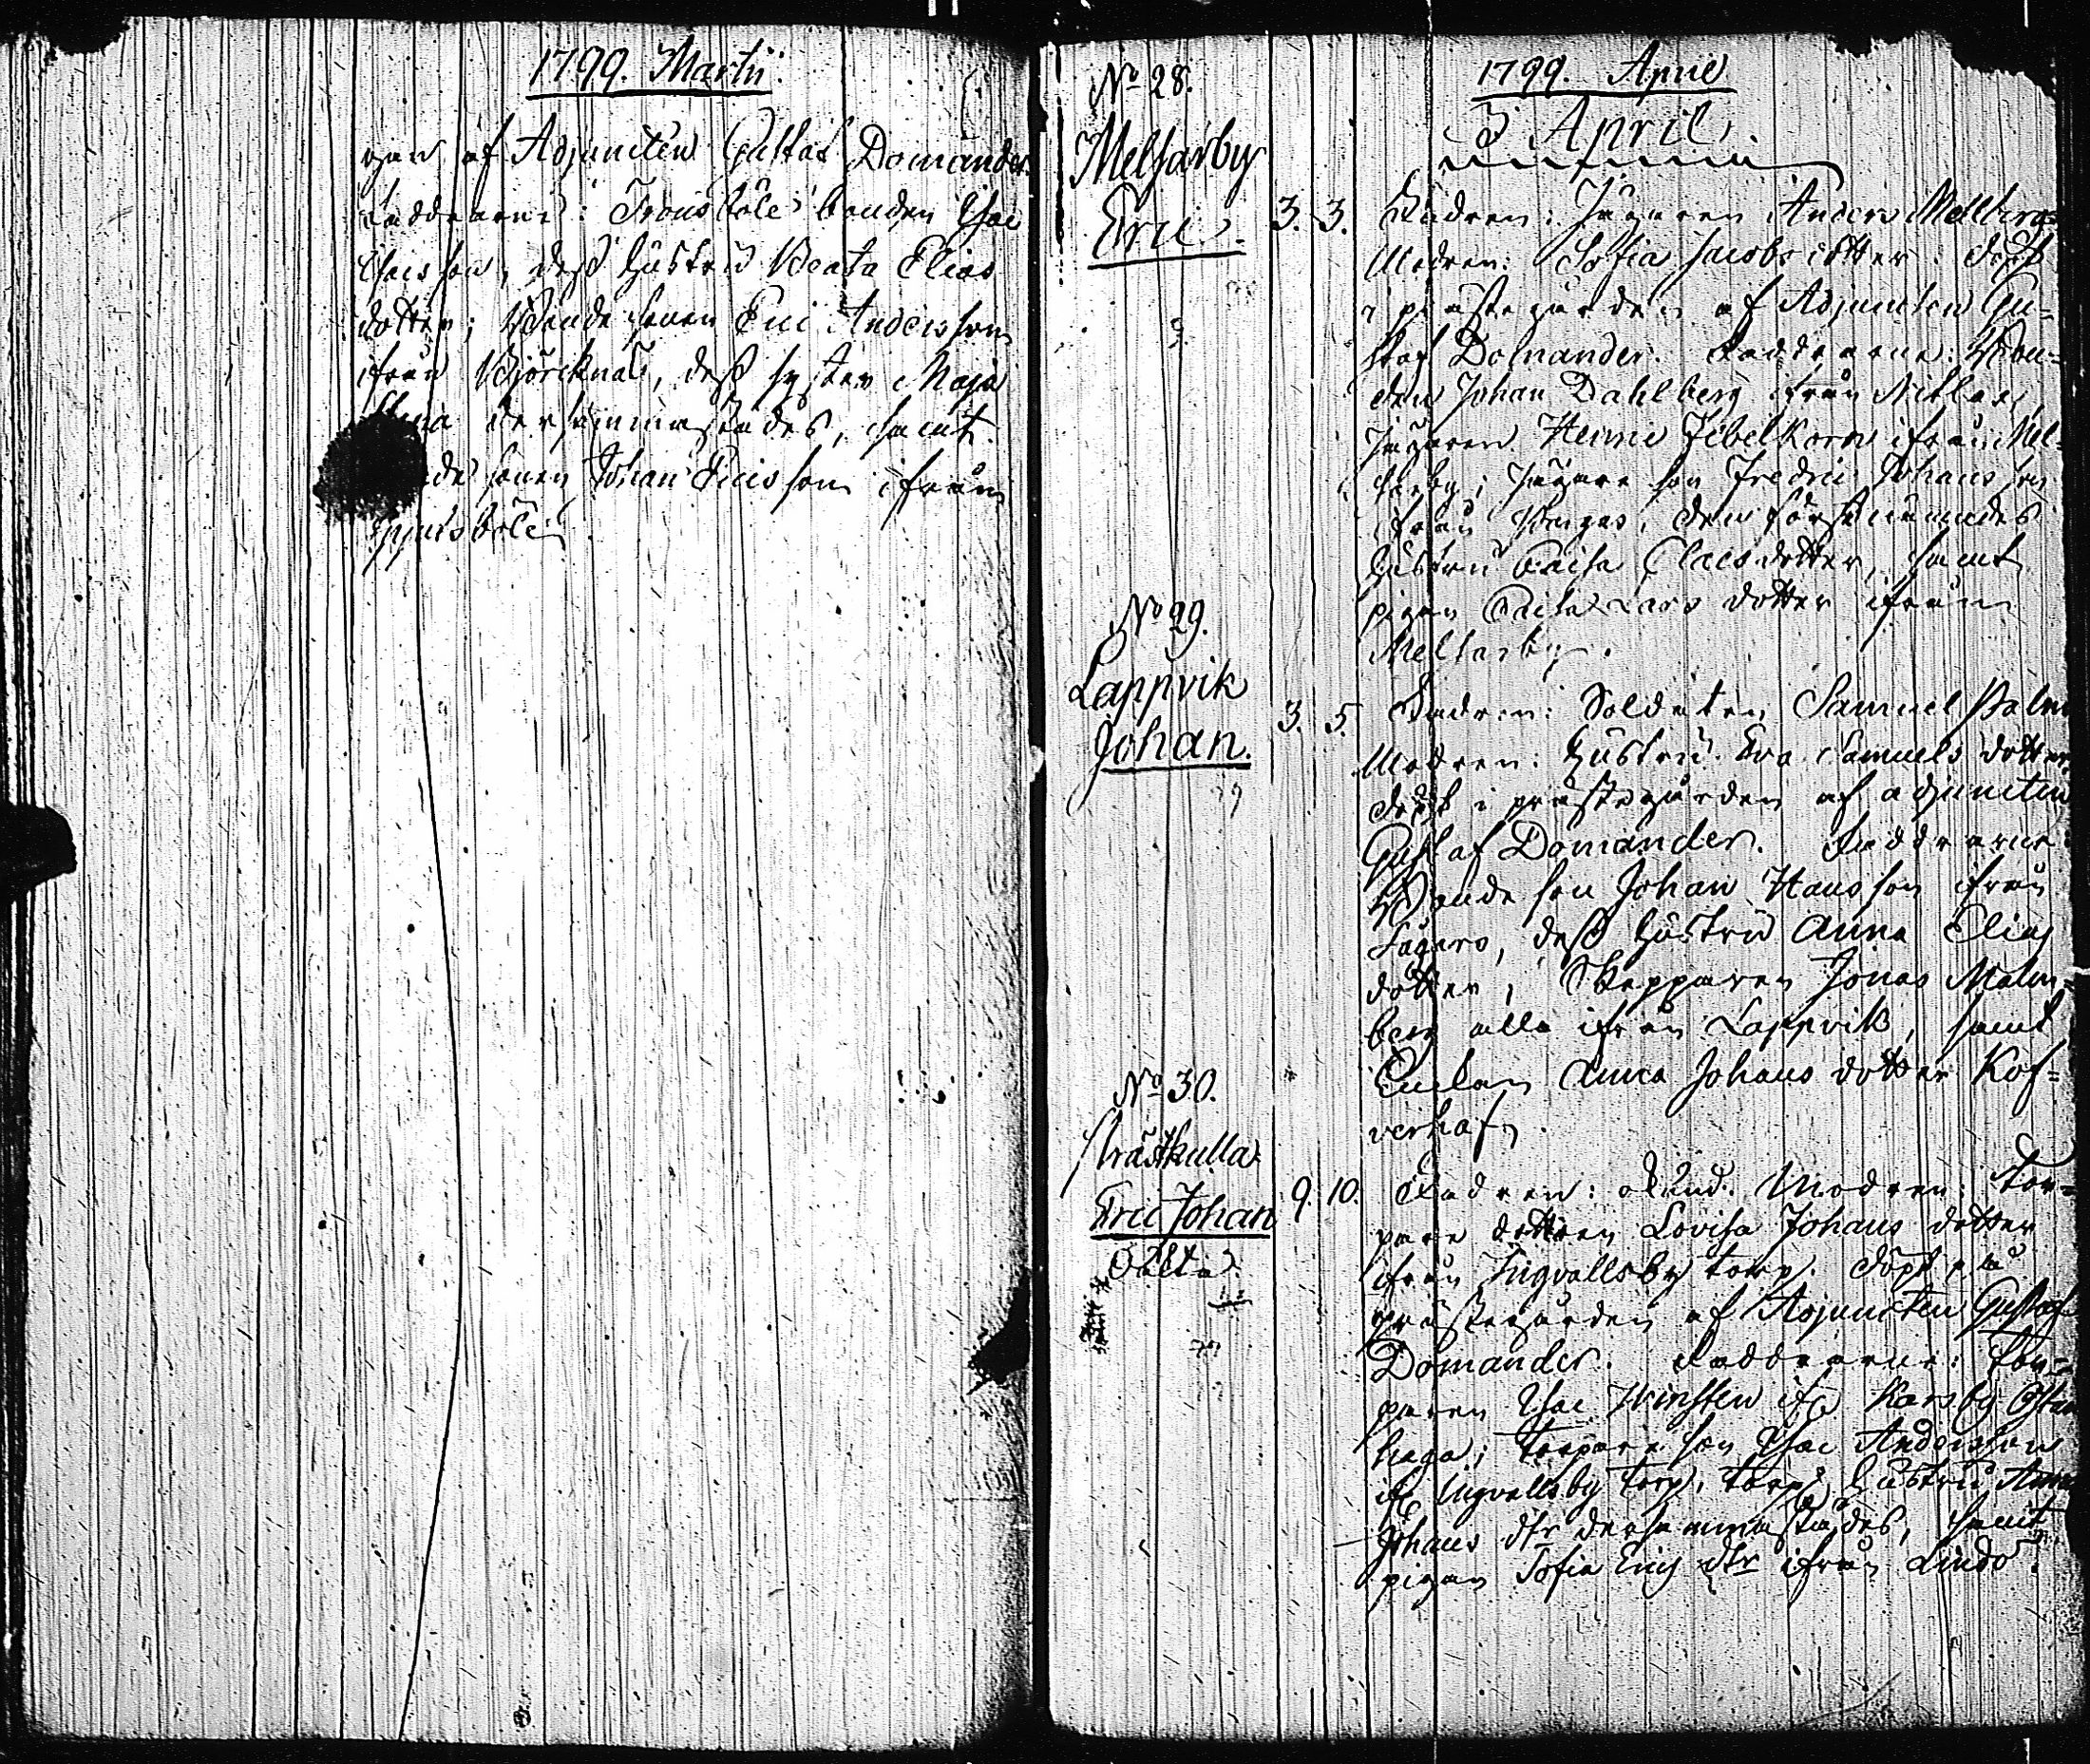 1799. Martii.
af Adjuncten Gustaf Domander.
Faddrarne: Tronsböle bonden Isac
Isacsson, dess hustru Beata Elias
dotter; Bonde sonen Eric Andersson
ifrån Björcknäs, dess syster Maja
dersammastädes, samt
sonen Johan Ericsson ifrån
1799. April
April
No 28.
Melsarby
Eric.
3. 3. Fadren: Jägaren Anders Mellberg
Modren: Sofia Jacobsdotter: döpt
i prästegården af Adjuncten Gu=
staf Domander. Faddrarne: Bon=
den Johan Dahlberg ifrån
Jägaren Henric Jebelkorn ifrån Mel=
sarby; Jägare son Fredric Johansson
ifrån den förstnämndes
hustru Caisa Claesdotter, samt
pigan Caisa Lars dotter ifrån
Melsarby.
No 29.
Lappvik
Johan.
3. 5. Fadren: Soldaten Samuel Palm
Modren: Hustru Eva Samuels dotter
döpt i prästegården af adjuncten
Gustaf Domander. Faddrarne
Bonde son Johan Hansson ifrån
dess hustru Anna Elias
dotter; Skepparen Jonas Malm=
berg alla ifrån Lappvik, samt
Enkan Anna Johans dotter Kof=
verhaf.
No 30.
Träskulla
Eric Johan
Oäkta.
9. 10. Fadren: okänd. Modren: Tor=
pare dottren Lovisa Johans dotter
ifrån Ingvallsby torp. Döpt på
prästegården af Adjuncten Gustaf
Domander. Faddrarne: Tor=
paren Isac Winsten ifr. Karsby
haga; Torpare son Isac Andersson
ifr. Ingvallsby torp; Torp. hustru Anna
Johans dtr dersammastädes, samt
pigan Sofia Erics dtr ifrån Lindö.